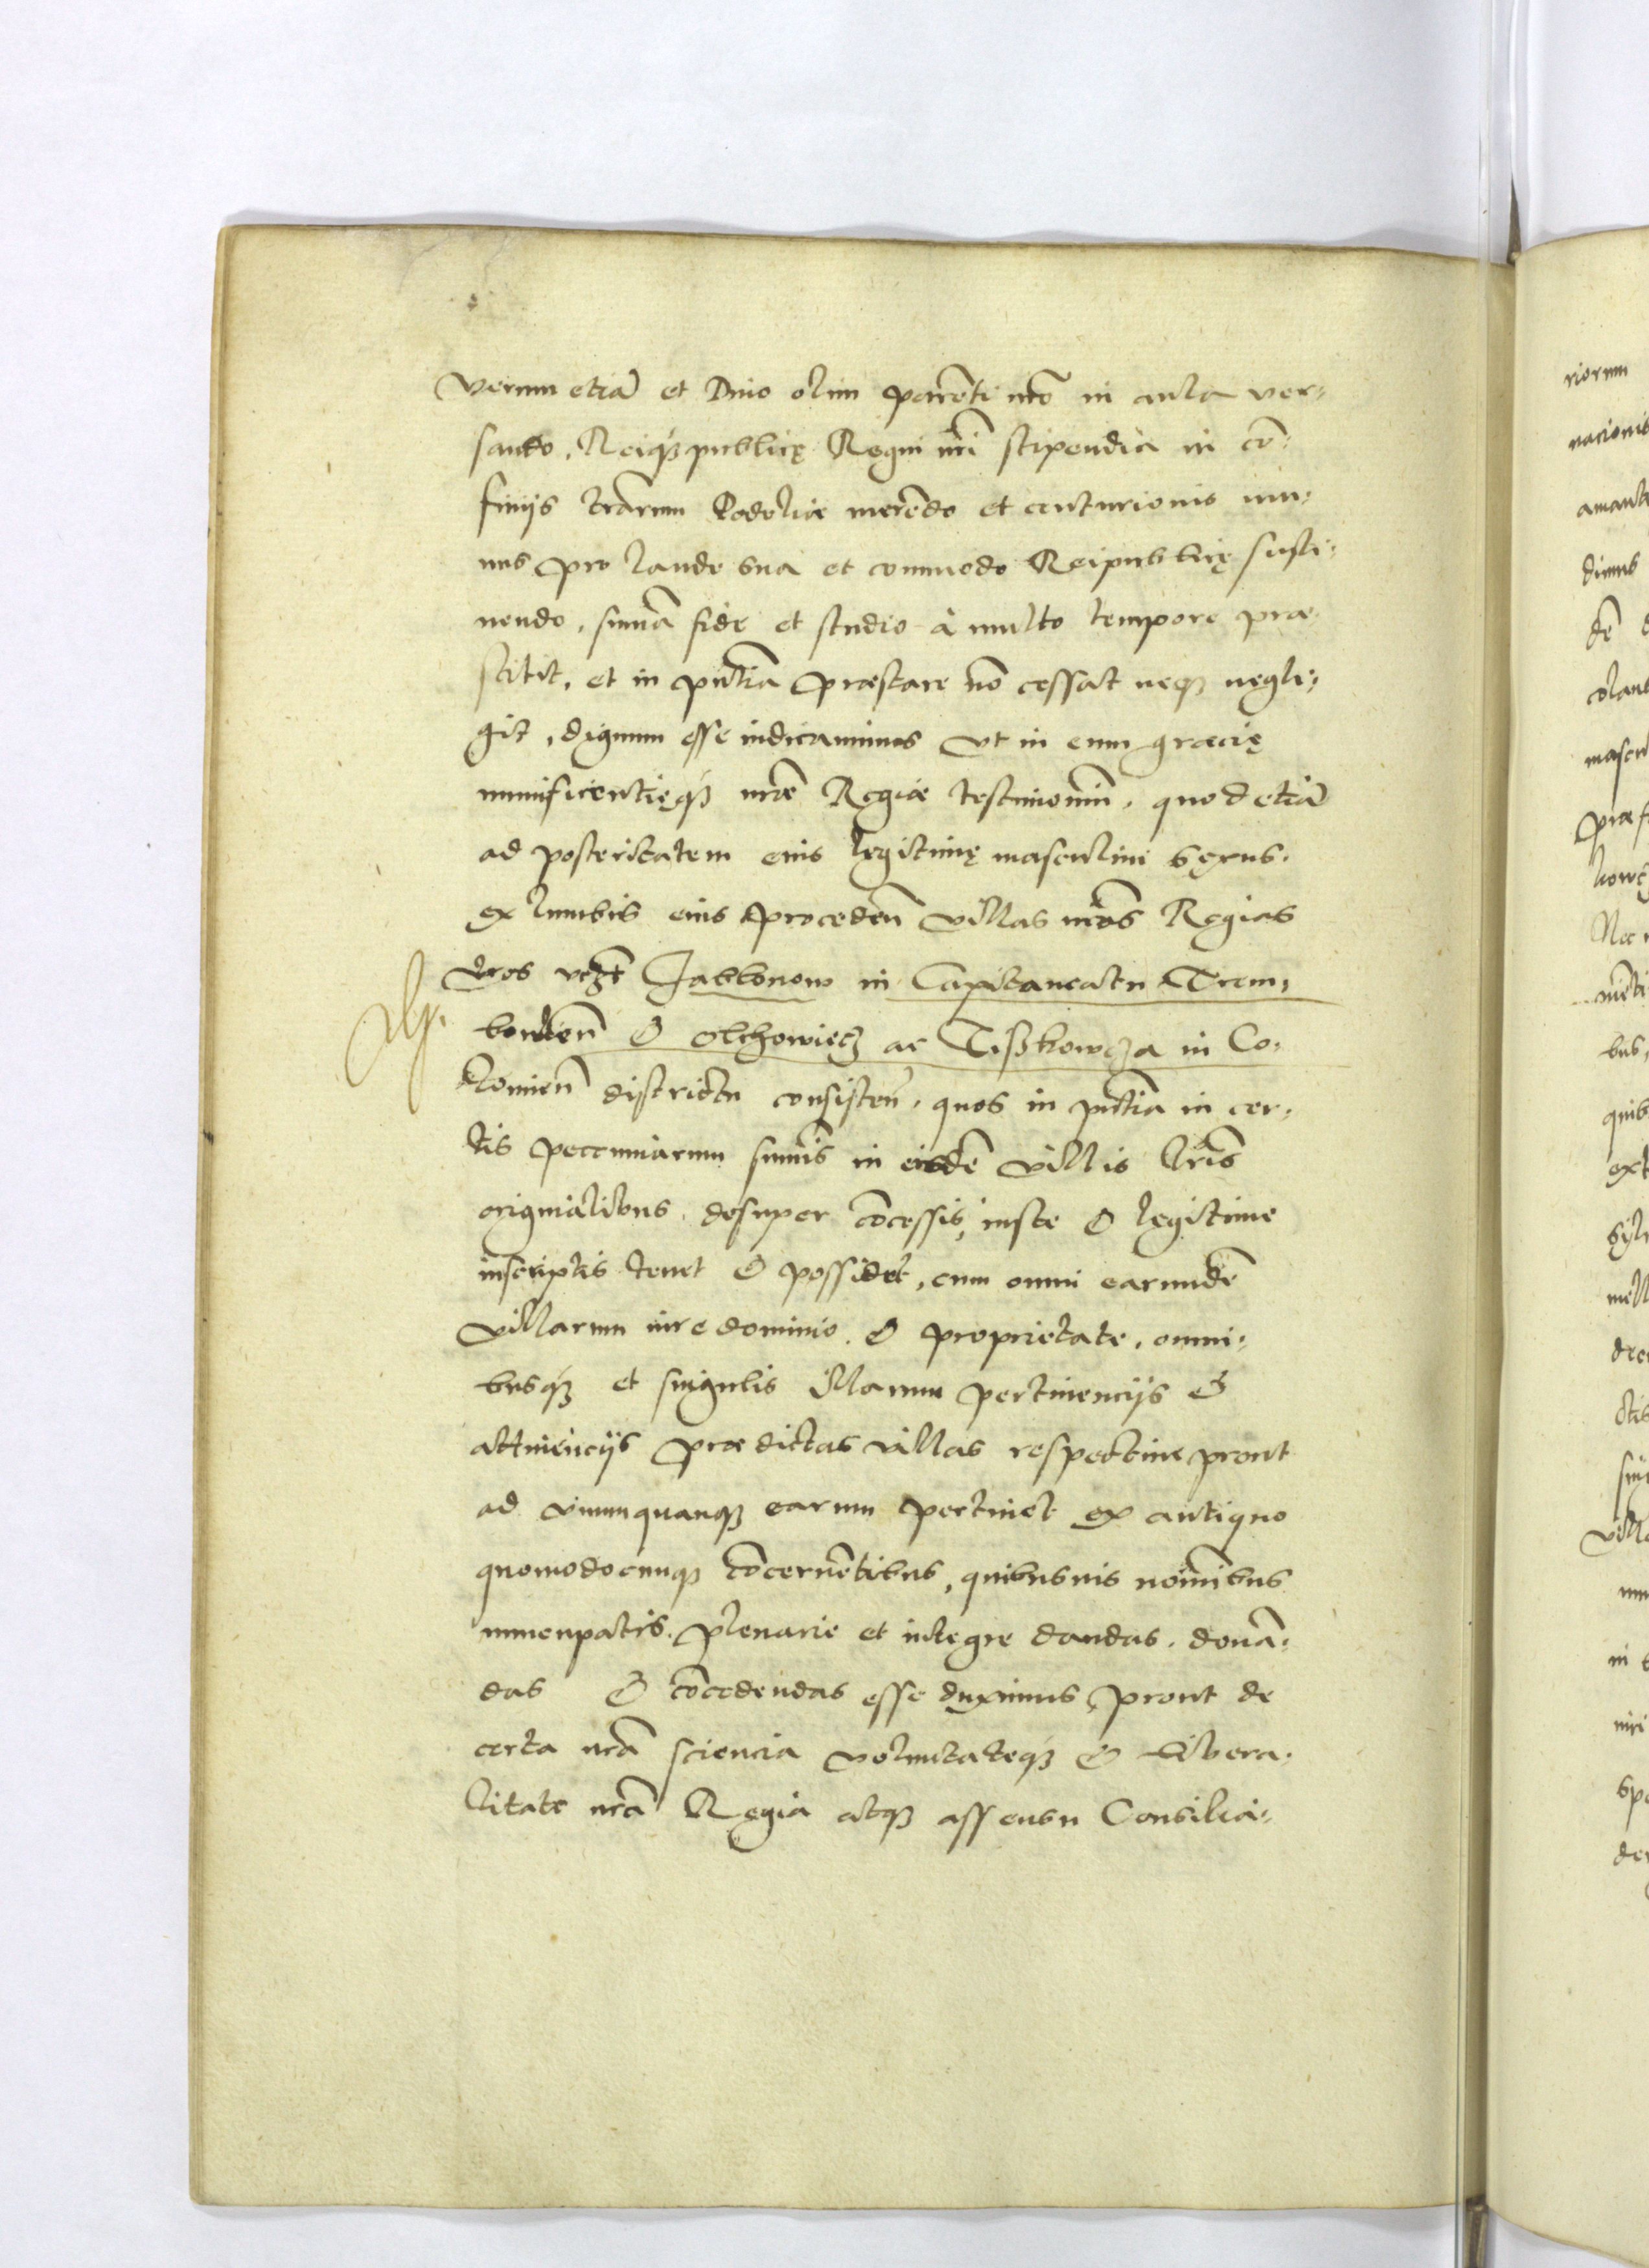 Verum etiā et Diuo olim parēti nrō in aula ver:
sando, Reiqʒ publicę Regni nrī stipendia in cō:
finijs trārum Podoliæ merēdo et centurionis mu:
nus pro laude sua et commodo Reipublicę susti:
nendo, summā fide et studio à multo tempore præ
stitit, et in pñtia præstare nō cessat neqʒ negli:
git, dignum esse indicauimus vt in eum gracię
munificentięqʒ nræ Regiæ testimoniū, quod etiā
ad posteritatem eius legitimę masculini sexus,
ex lumbis eius proceden̄ villas nrās Regias
tres vczt Jabłonow in Capitaneatu Trem:
bowlen̄ & Olchowiecz ac Tißkowcza in Co:
lomien̄ districtu consisten̄, quos in pñtia in cer:
tis pecuniarum summis in eisdē villis lrīs
originalibus desuper cōcessis, iuste & legitime
inscriptis tenet & possidet, cum omni earundē
villarum iure dominio & proprietate, omni:
busqʒ et singulis illarum pertinencijs &
attinēcijs prædictas villas respectiue prout
ad vnumquanqʒ earum pertinet ex antiquo
quomodocunqʒ cōcernētibus, quibusuis noīnibus
nuncupatis, plenarie et integre dandas, donā:
das & cōcedendas esse duximus, prout de
certa nrā sciencia voluntateqʒ & libera:
litate nrā Regia atqʒ assensu Consilia:
riorum
amant
dimus
dē
colant
mascul
præf
Nec
bus,
quib
ext
mell
villa
in